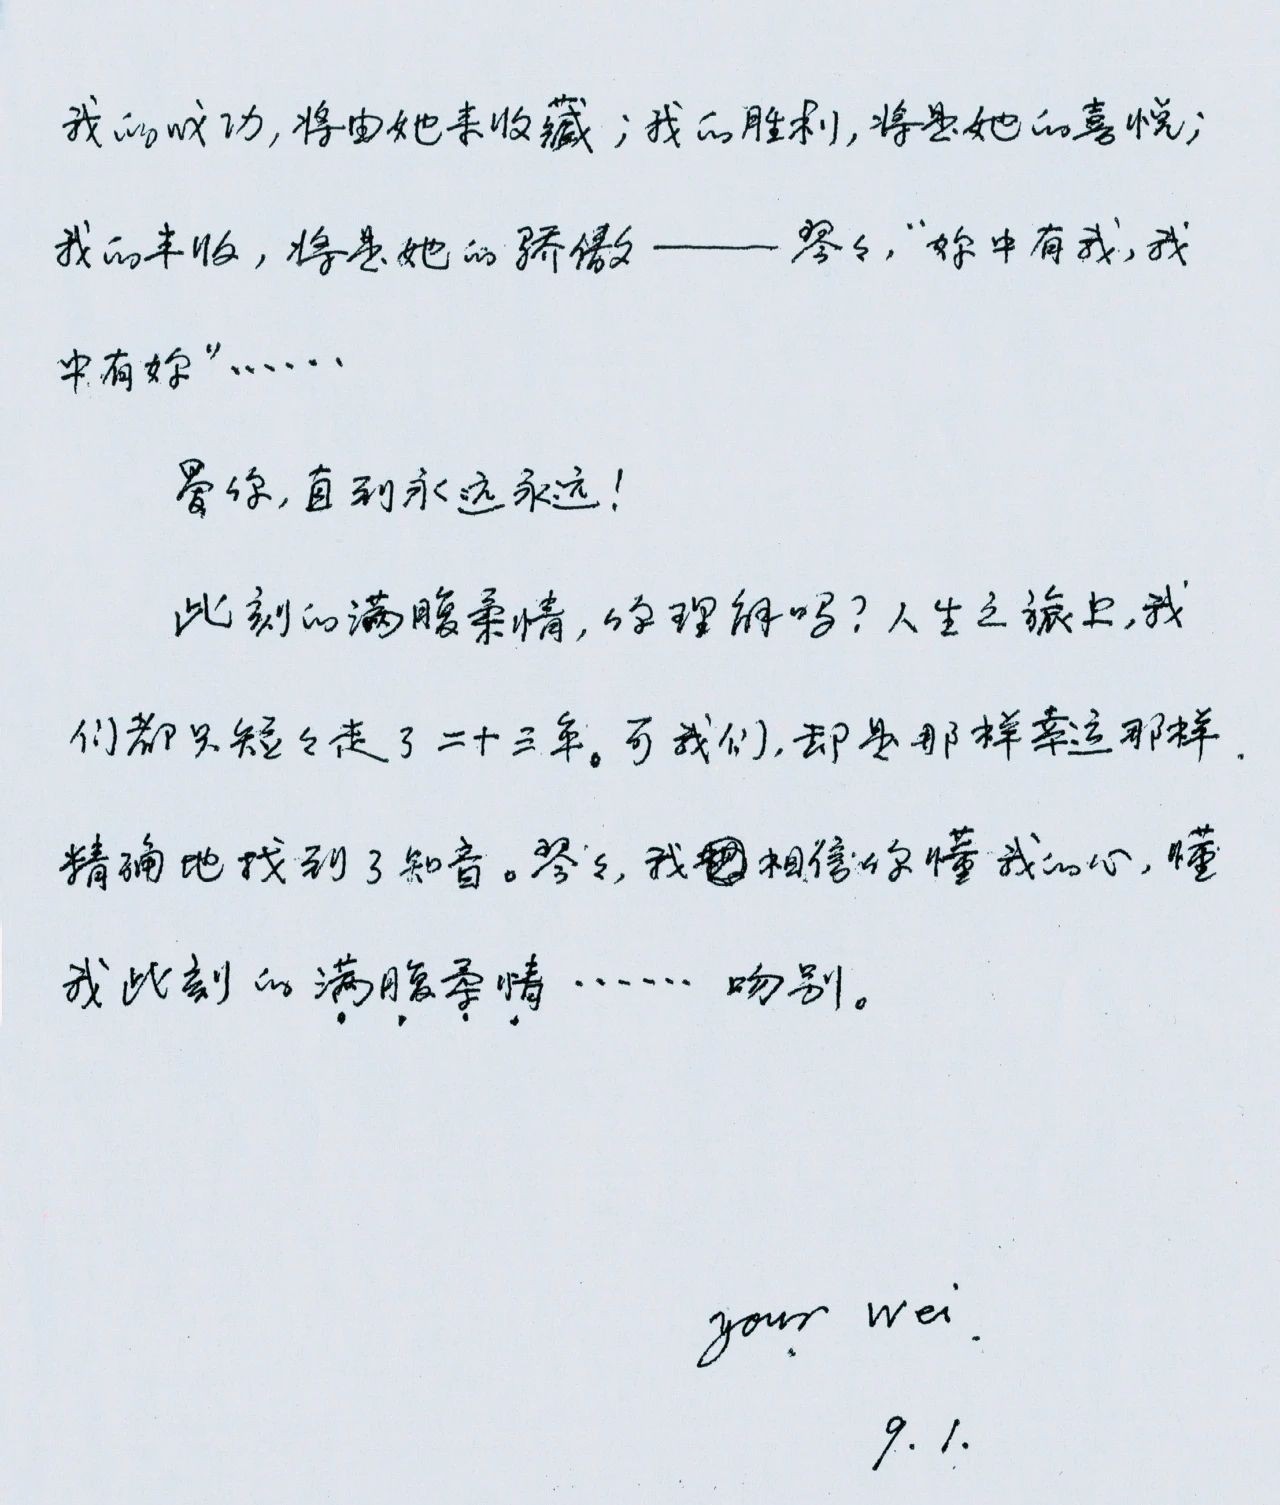 我的成功,将由她来收藏;我的胜利,将是她的喜悦;
我的丰收,将是她的骄傲——琴々,“妳中有我,我
中有妳”……
爱你,直到永远永远!
此刻的满腹柔情,你理解吗?人生之旅上,我
们都只短々走了二十三年。可我们,却是那样幸运那样
精确地找到了知音。琴々,我相信你懂我的心,懂
我此刻的满腹柔情……吻别。
your wei.
9.1.